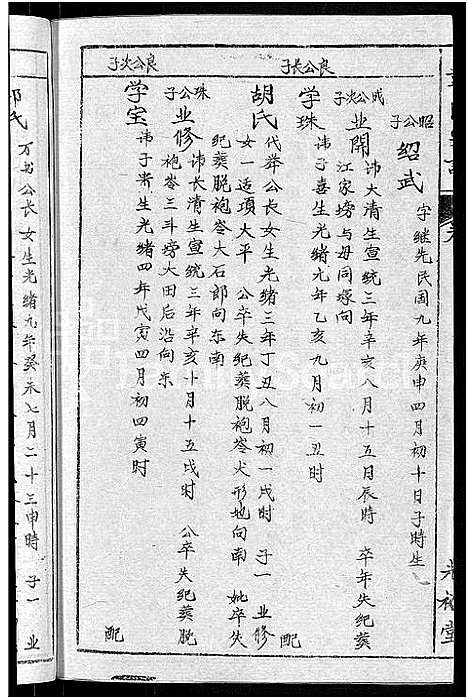 良公長子
良公次子
昭公子
紹武
字继先民国九年庚申四月初十日子時生
成公次子
业開
讳大清生宣统三年辛亥八月十五日辰時 卒年失纪葬
江家塝与母同塚向
学珠
讳子喜生光绪元年乙亥九月初一丑时
配
胡氏
代举公長女生光绪三年丁丑八月初一戌时 子一 业修
女一适項大平 公卒失纪葬脱袍岺犬形地向南 妣卒失
纪葬脱袍岺大石郎向东南
珠公子
业修
讳长清生宣统三年辛亥十月十五戌时 公卒失纪葬脱
袍岺三斗塝大田后沿向东
学宝
讳子贵生光绪四年戊寅四月初四寅时
配
氏
万书公长女生光绪九年癸未七月二十三申時 子一 业
堂